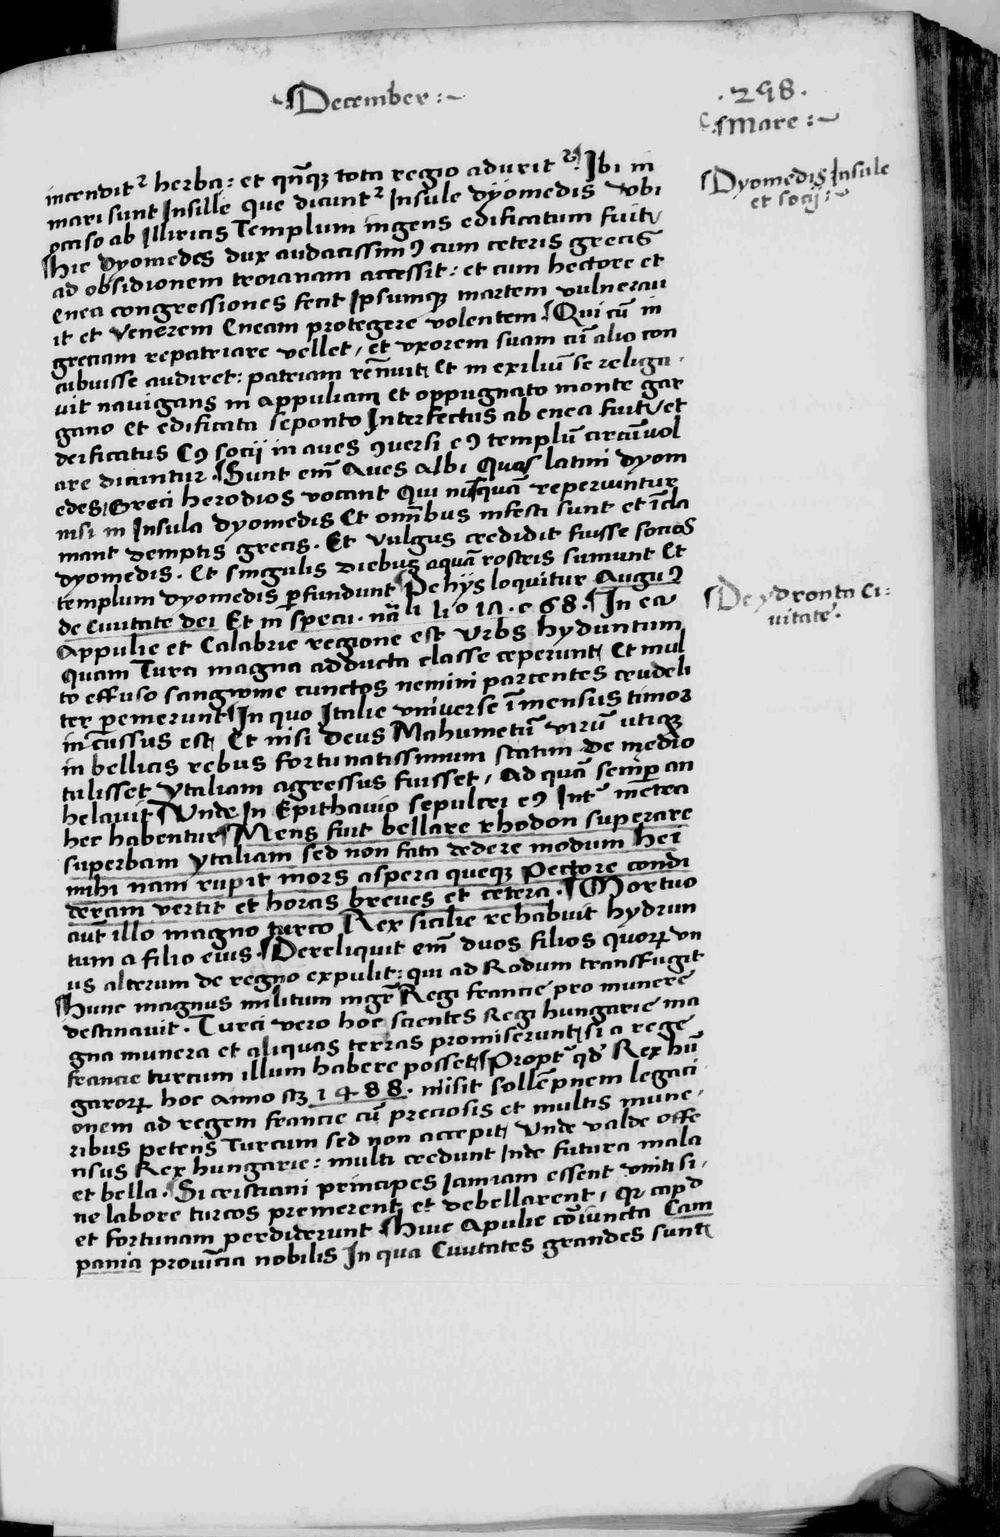 December :~
.298.
Mare :~
incendit² herba : et qnqꝫ tota regio adurit² Ibi in
mari sunt Insule que dicunt² Insule dyomedis vbi
occiso ab Illiricis Templum ingens edificatum fuit
Hic dyomedes dux audacissimꝰ cum ceteris grecis
ad obsidionem troianam accessit : et cum hectore et
enea congressiones fecit Ipsumqꝫ martem vulnerau
it et Venerem Eneam protegere volentem. Qui cū in
greciam repatriare vellet, et vxorem suam cū alio con
cubuisse audiret : patriam rēnuit et in exiliū se religa
vit navigans in appuliam et oppugnato monte gar
gano et edificata seponto Interfectus ab enea fuit et
deificatus Eꝰ socij in aues ꝯuersi eꝰ templū circūuol
are dicuntur. Sunt em̄ Aves albi Quas latini dyom
edes Greci herodios vocant Qui nusquā reperiuntur
nisi in Insula dyomedis Et omībus infesti sunt et īcla
mant demptis grecis. Et vulgus credidit fuisse socios
dyomedis. Et singulis diebus aquā rostris sumunt Et
templum dyomedis ꝑfundunt De hijs loquitur Auguꝰ
de ciuitate dei Et in specu. nāli li° 1. c 68. In ea
Appulie et Calabrie regione est Vrbs hyduntum
Quam Turci magna adducta classe ceperunt Et mul
to effuso sangwine cunctos nemini parcentes crudeli
ter peremerunt In quo Italie vniuerse īmensus timor
incussus est Et nisi deus Mahumetū virū utiqꝫ
in bellicis rebus fortunatissimum statim de medio
tulisset ytaliam agressus fuisset, ad quā semꝑ an
helauit Vnde In Epithavio sepulcri eꝰ Int² metra
hec habentur Mens fuit bellare rhodon superare
superbam ytaliam sed non fata dedere modum hei
mihi nam rupit mors aspera queqꝫ Pectore condi
deram vertit et horas breues et cetera. Mortuo
aut illo magno turco Rex sicilie rehabuit hydrun
tum a filio eius. Dereliquit em̄ duos filios quorꝝ vn
us alterum de regno expulit : qui ad Rodum transfugit
Hunc magnus militum mgr̄ Regi francie pro munere
destinauit. Turci vero hoc scientes Regi hungarie ma
gna munera et aliquas terras promiserunt si a rege
francie turcum illum habere posset Propt² qd Rex hū
garorꝝ hoc Anno sꝫ 1488. misit sollēpnem legaci
onem ad regem francie cū preciosis et multis mune
ribus petens Turcum sed non accepit Vnde valde offe
nsus Rex hungarie : multi credunt Inde futura mala
et bella. Si cristiani principes Iamiam essent vniti si
ne labore turcos premerent et debellarent, qꝛ capd
et fortunam perdiderunt Huic Apulie cōiuncta Cam
pania prouīcia nobilis In qua Ciuitates grandes sunt
Dyomedis Insule
et socij :~
De ydronto Ci=
uitate.